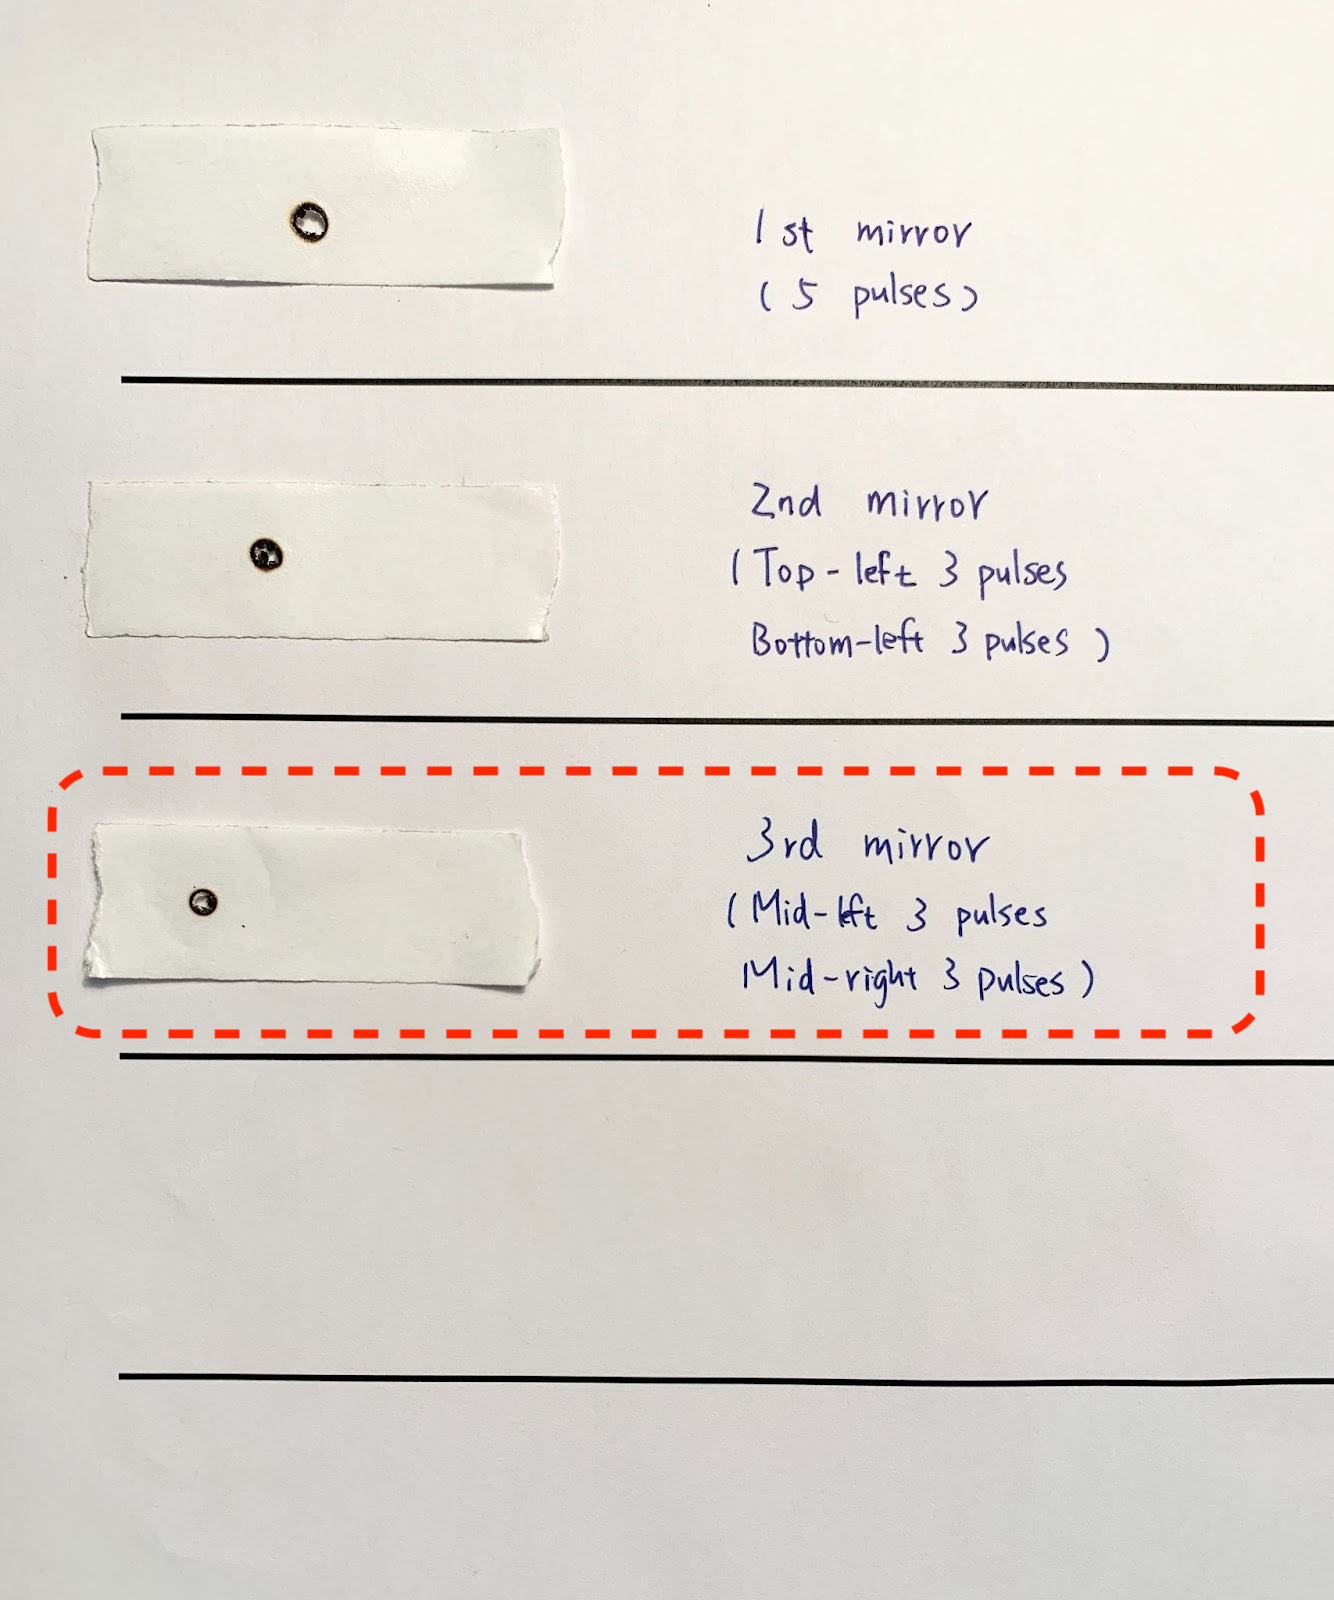 1st mirror
(5 pulses)
2nd mirror
(Top-left 3 pulses
Bottom-left 3 pulses)
3rd mirror
(Mid-left 3 pulses
Mid-right 3 pulses)